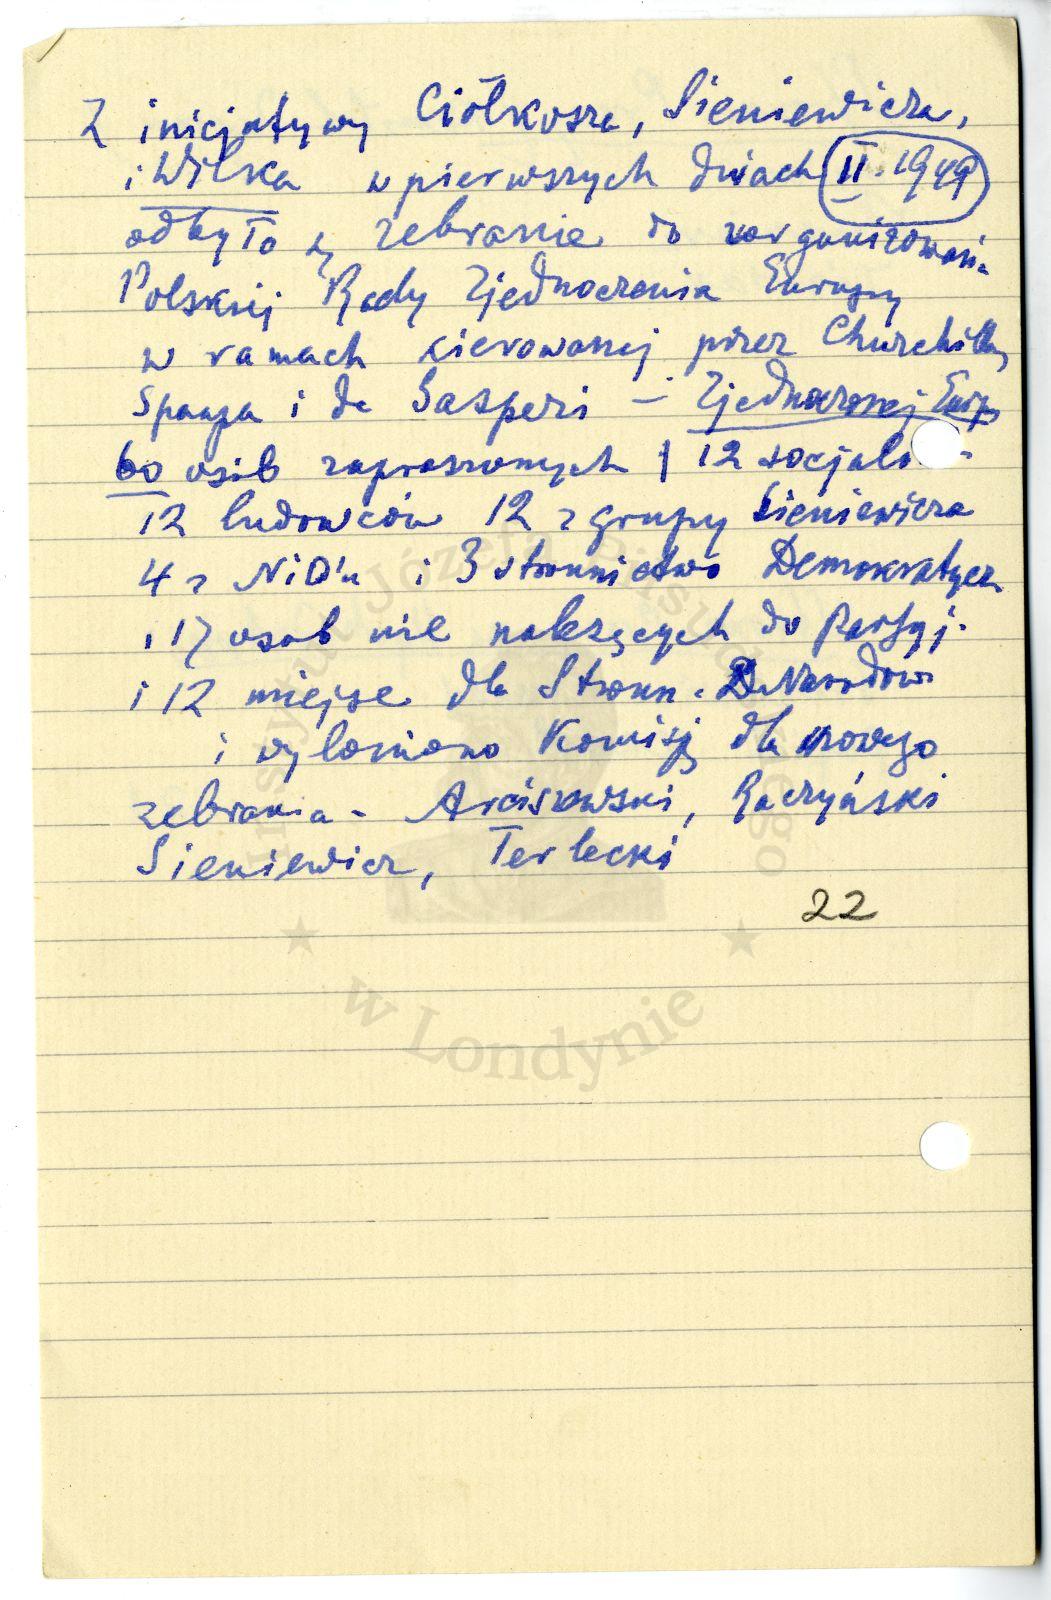 Z inicjatywy Ciołkosza, Sieniewicza,
i Wilka w pierwszych dniach II. 1949
odbyło się zebranie do zorganizowania
Polskiej Rady Zjednoczenia Europy
w ramach kierowanej przez Churchilla,
Spaaka i de Gasperi – Zjednoczonej Europy
60 osób zaproszonych / 12 socjalo
12 ludowców 12 z grupy Sieniewicza
4 z NiD'u i 3 stronnictwo Demokratycz
i 17 osób nie należących do Partyj.
i 12 miejsc dla Stronn. Narodow
i wyłoniono Komisję dla nowego
zebrania - Arciszewski, Raczyński
Sieniewicz, Terlecki
22
Instytut Józefa Piłsudskiego
w Londynie